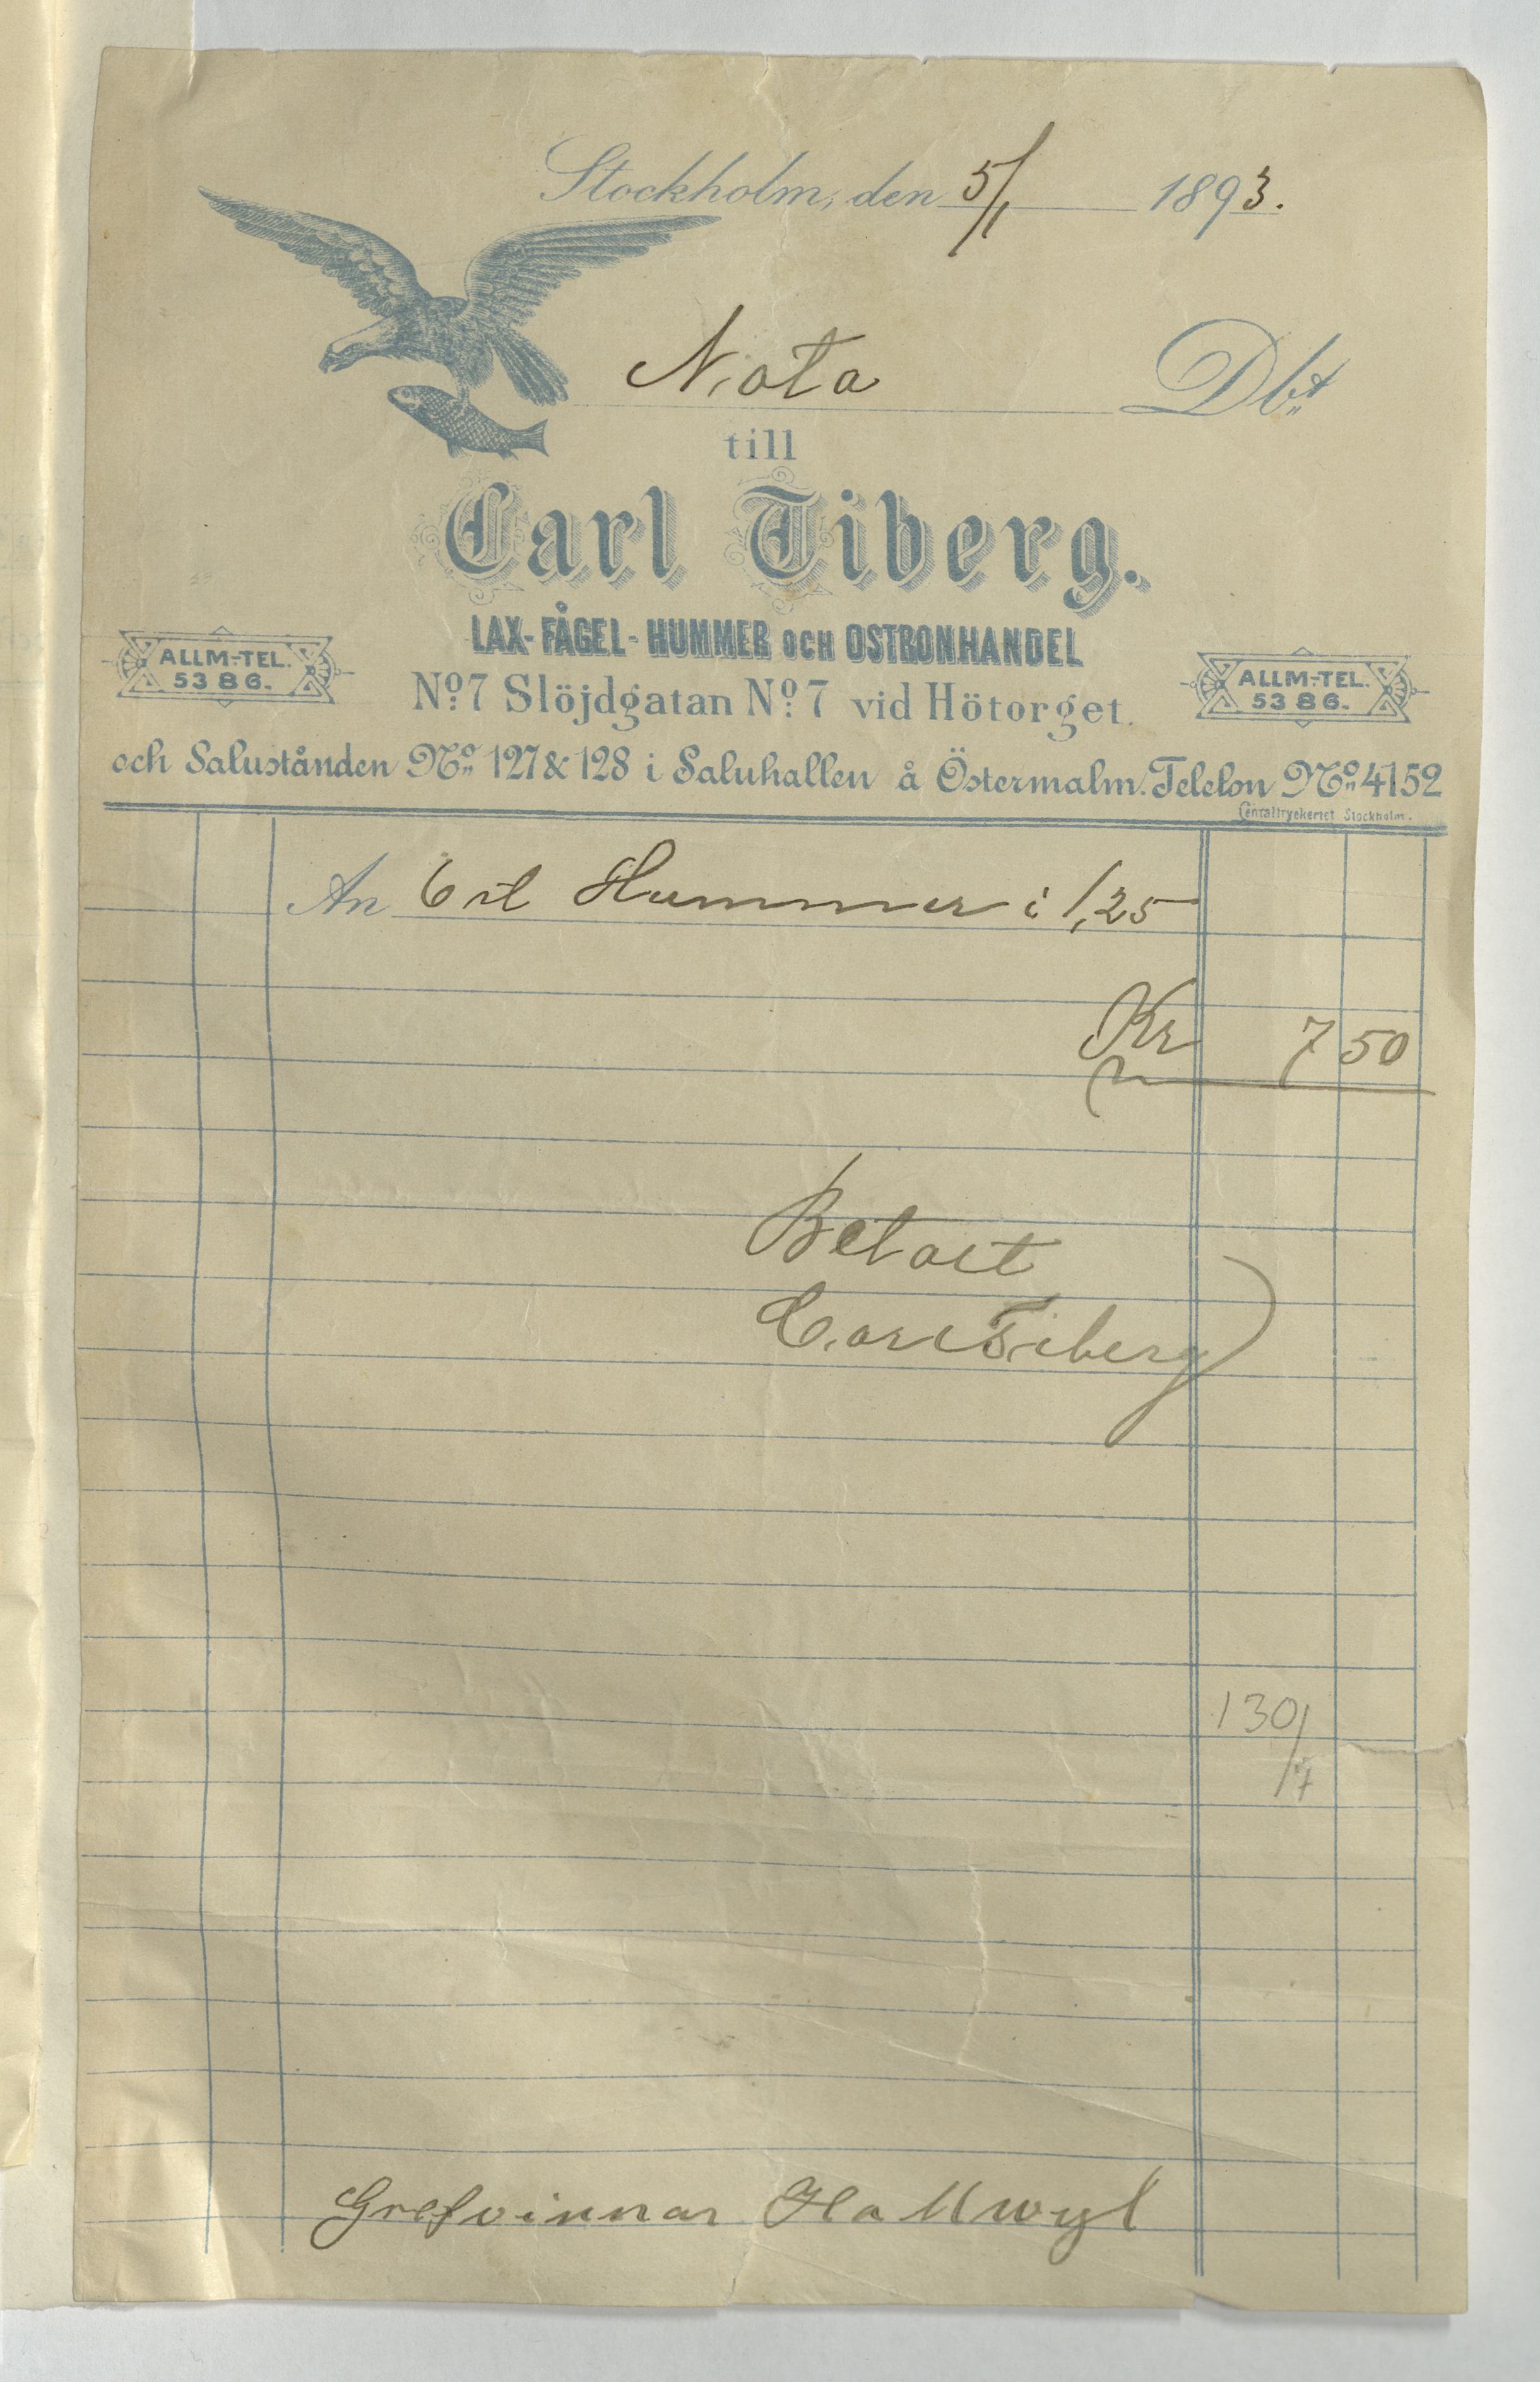 Stockholm, den 5/1 1893.
Nota Dbt
till
Carl Tiberg.
LAX-FÅGEL-HUMMER OCH OSTRONHANDEL
ALLM:TEL. 5386.
No 7 Slöjdgatan No 7 vid Hötorget.
ALLM:TEL. 5386.
och Saluständen No 127 & 128 i Saluhallen å Östermalm. Telefon No 4152
Centraltryckeriet Stockholm.
An 6 st Hummer i 1,25
Kr 7 50
Betalt
Carl Tiberg
130/7
Grefvinnan Hallwyl